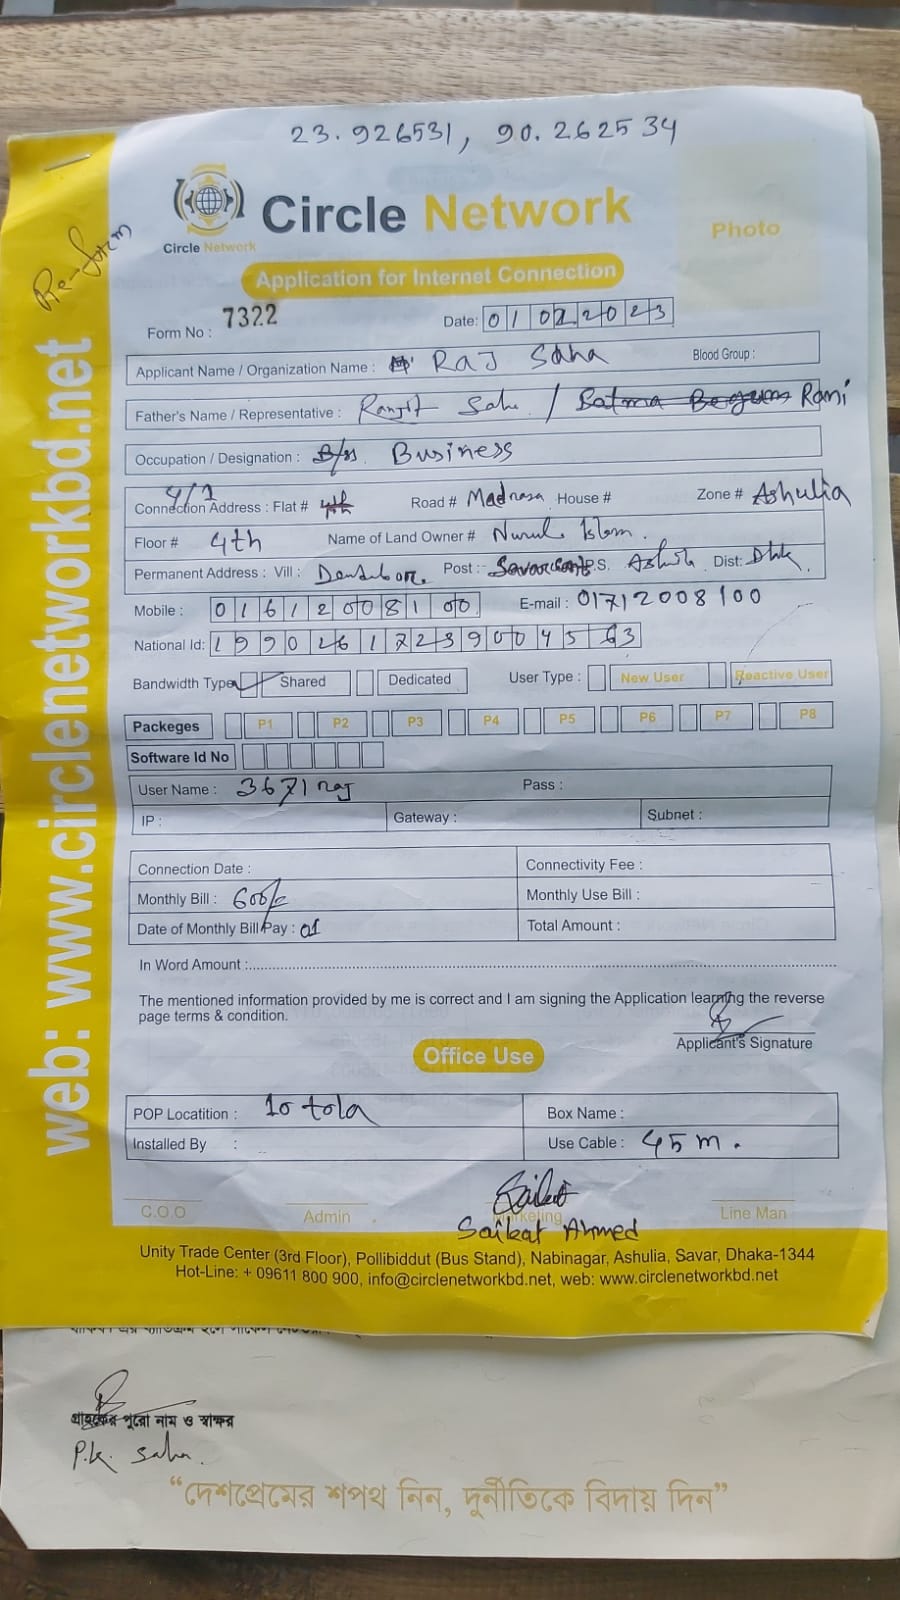 23.926531, 90.262534
Re-form
Circle Network
Circle Network
Photo
Application for Internet Connection
Form No : 7322
Date: 01 02 2023
Applicant Name / Organization Name : Raj Saha
Blood Group :
Father's Name / Representative : Ranjit Saha / Rani
Occupation / Designation : Business
Connection Address : Flat # 4/1 Road # Madrasa House # Zone # Ashulia
Floor # 4th Name of Land Owner # Nurul Islam.
Permanent Address : Vill : Post :- Savar P.S. Ashulia Dist: Dhk
Mobile : 01612008100 E-mail : 01712008100
National Id:
Bandwidth Type Shared Dedicated User Type : New User Reactive User
Packeges P1 P2 P3 P4 P5 P6 P7 P8
Software Id No
User Name : 3671raj Pass :
IP : Gateway : Subnet :
Connection Date : Connectivity Fee :
Monthly Bill : 600/= Monthly Use Bill :
Date of Monthly Bill Pay : 01 Total Amount :
In Word Amount :
The mentioned information provided by me is correct and I am signing the Application learning the reverse
page terms & condition.
Applicant's Signature
Office Use
POP Locatition : 10 tola Box Name :
Installed By : Use Cable : 45 m.
C.O.O Admin Marketing Line Man
Saikat Ahmed
Unity Trade Center (3rd Floor), Pollibiddut (Bus Stand), Nabinagar, Ashulia, Savar, Dhaka-1344
Hot-Line: + 09611 800 900, info@circlenetworkbd.net, web: www.circlenetworkbd.net
web: www.circlenetworkbd.net
গ্রাহকের পুরো নাম ও স্বাক্ষর
P.k. saha.
“দেশপ্রেমের শপথ নিন, দুর্নীতিকে বিদায় দিন”